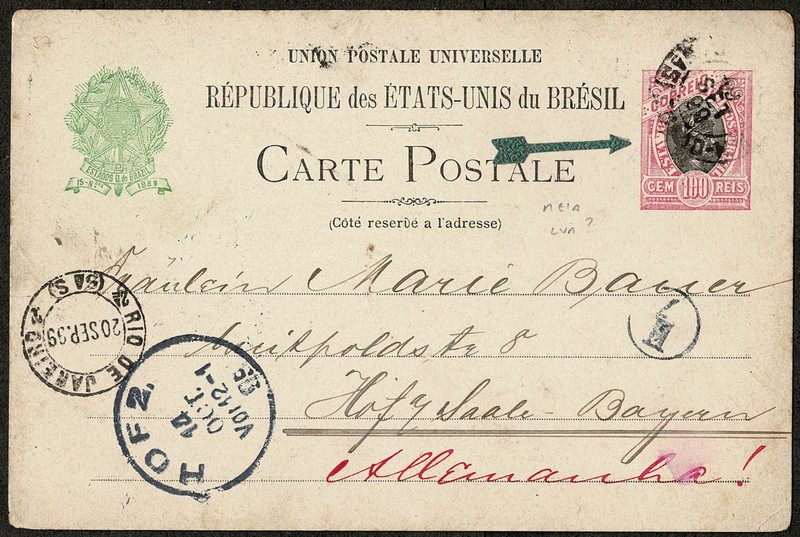 57
UNION POSTALE UNIVERSELLE
RÉPUBLIQUE des ÉTATS-UNIS du BRÉSIL
CARTE POSTALE
(Côté reservé a l'adresse)
ESTADOS U. do BRAZIL
15-Nbro 1889
CORREIO
CEM 100 REIS
MEIA
LUA ?
Fräulein Marie Bauer
Luitpoldstr 8
Hof a/ Saale - Bayern
Allemanha!
RIO DE JANEIRO
20 SEP. 99
HOF 2.
14
OCT.
VOR 12-1